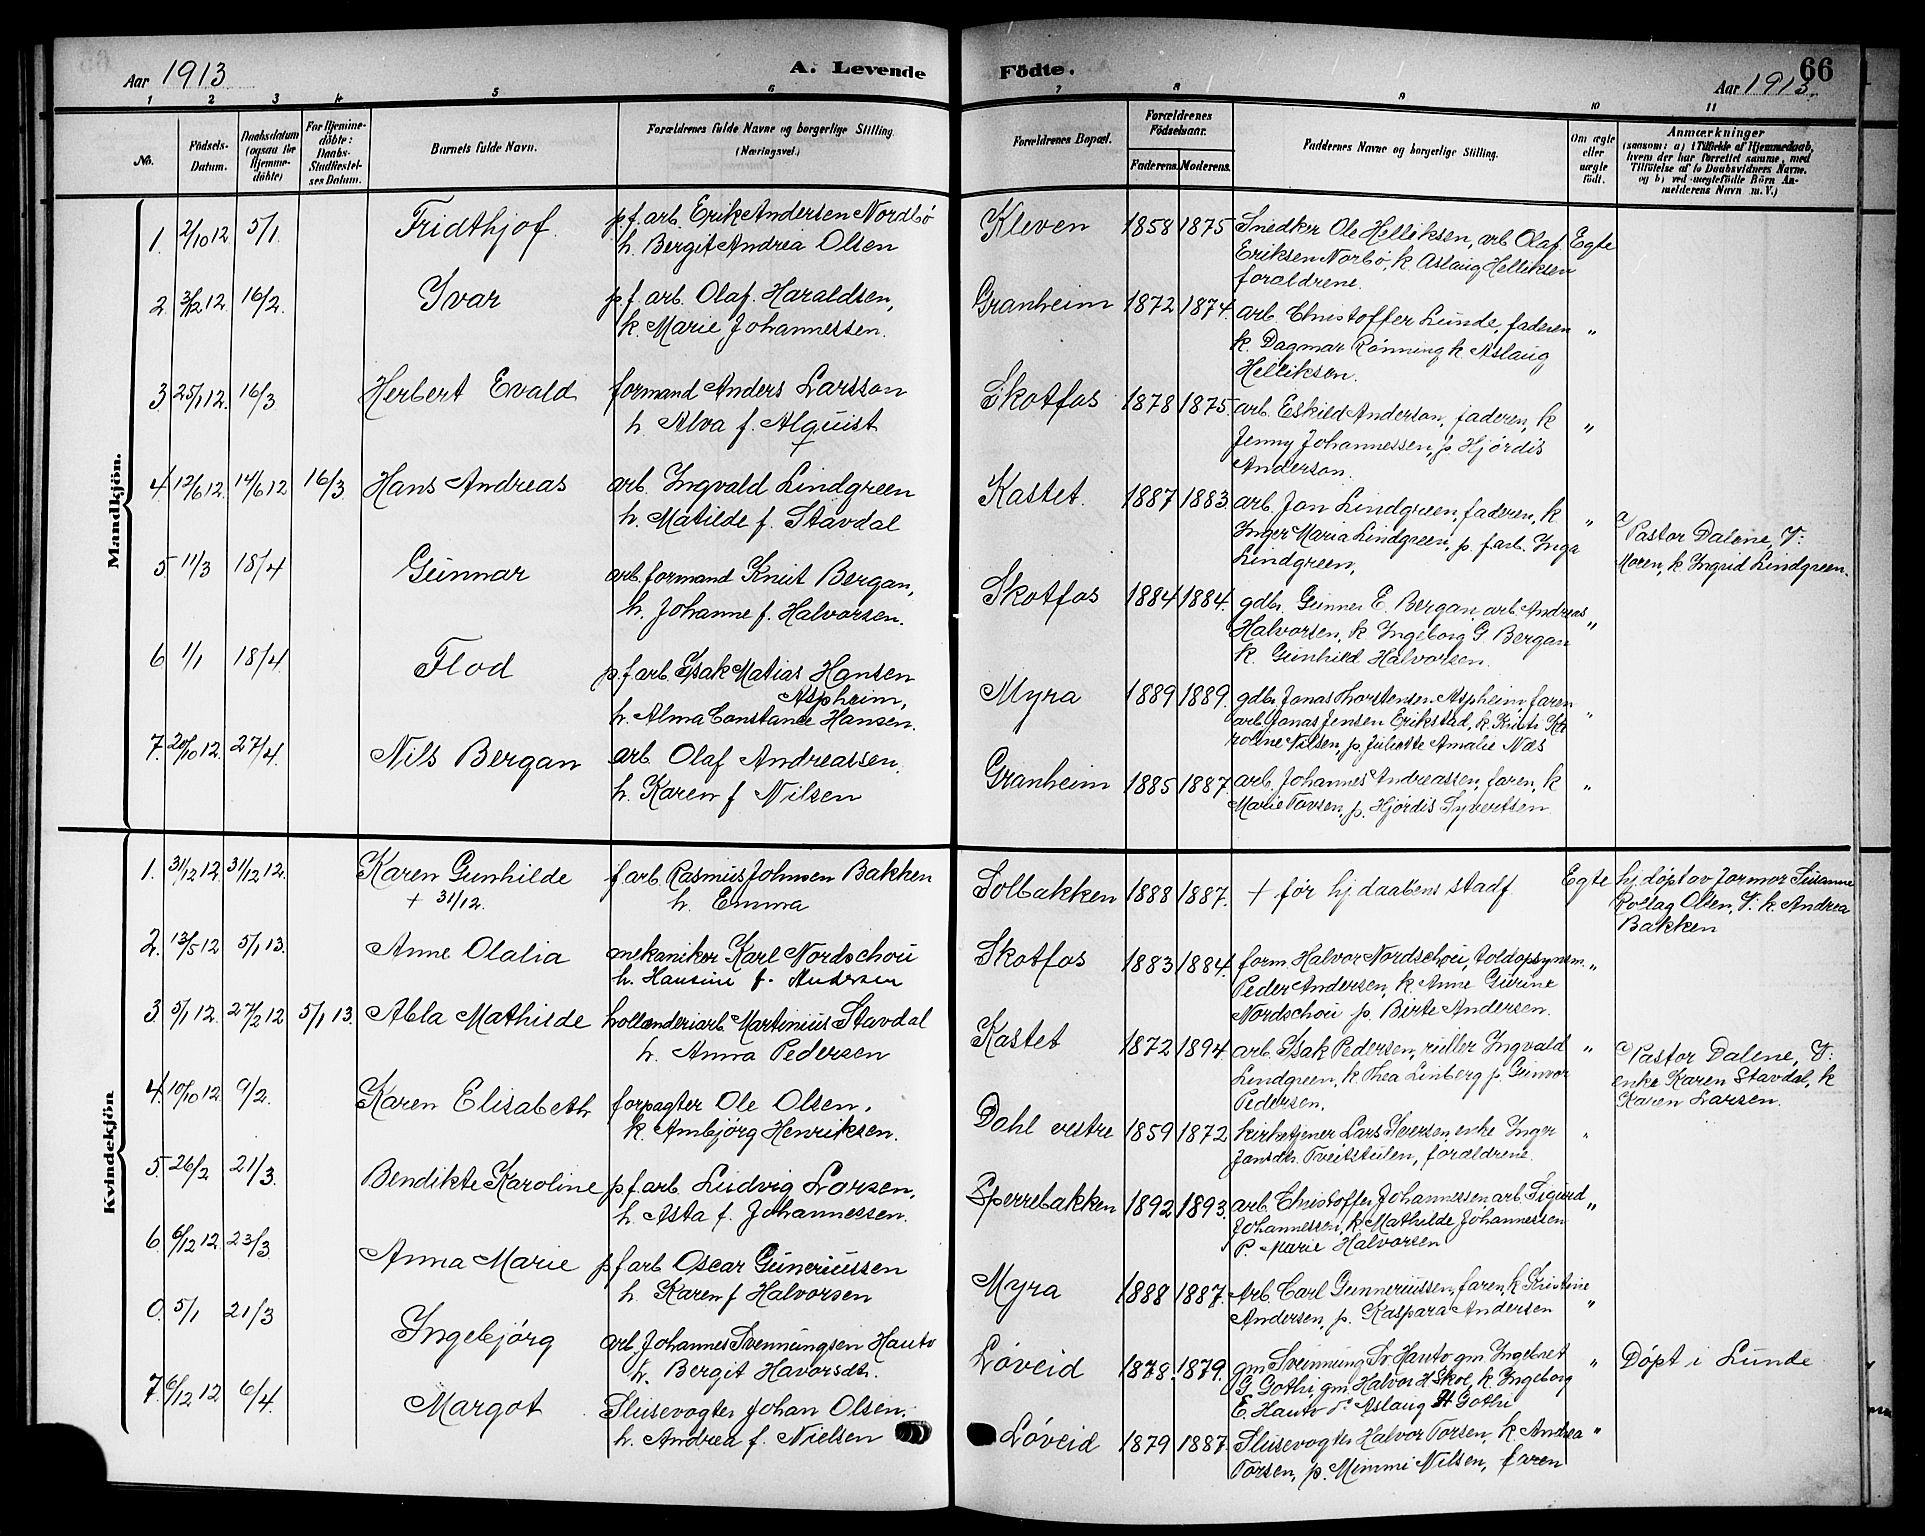 Aar 1913
A. Levende
1 2 3 4 5 6
No.
Födsels-Datum.
Daabsdatum (ogsaa for Hjemme-döbte)
For Hjemme-döbte: Daabs-Stadfæstel-ses Datum.
Barnets fulde Navn.
Forældrenes fulde Navne og borgerlige Stilling.
(Næringsvei.)
Mandkjön.
1. 2/10 12 5/1 Fridthjof. p.f. arb. Erik Andersen Nordbö
h. Bergit Andrea Olsen
2 12. 16/2. Ivar p.f. arb. Olaf Haraldsen,
k. Marie Johannessen.
3 25/1 12. 16/3 Herbert Evald formand Anders Larsson
h. Alva f. Alquist
4 12/6 12. 14/6 12 16/3 Hans Andreas arb. Ingvald Lindgreen
h. Matilde f. Stavdal
5 11/3 18/4 Gunnar arb. formand Knut Bergan,
h. Johanne f. Halvorsen.
6 1/1 18/4 Flod p.f. arb. Isak Matias Hansen
Aspheim,
h. Alma Constance Hansen.
7. 20/10 12. 27/4. Nils Bergan arb. Olaf Andreassen.
h. Karen f Nilsen
Kvindekjön
1. 31/12 12. 31/12 12. Karen Gunhilde f. arb. Rasmus Johnsen Bakken
+ 31/12. h. Emma
2. 13/5 12 5/1 13. Anne Olalia mekaniker Karl Nordschou
h. Hansine f. Andersen
3. 5/1 12. 27/2 12 5/1 13. Abla Mathilde hollænderiarb. Martinius Stavdal
h. Anna Pedersen
4. 10/10 12 9/2. Karen Elisabeth forpagter Ole Olsen.
k. Ambjörg Henriksen.
5. 26/2 21/3. Bendikte Karoline p.f. arb. Ludvig Larsen,
h. Asta f. Johannessen.
6. 6/12 12. 23/3. Anna Marie p.f. arb Oscar Guneriussen
h. Karen f Halvorsen
0. 5/1 21/3 Ingebjörg arb. Johannes Svennungsen Hauto
h. Bergit Havorsdt.
7. 6/12 12 6/4. Margot Slusevogter Johan Olsen.
h. Andrea f. Nielsen
Födte.
66
Aar 1913.
7 8 9 10 11
Forældrenes Bopæl.
Forældrenes Födselsaar.
Faderens. Moderens.
Faddernes Navne og borgerlige Stilling.
Om ægte eller uægte födt.
Anmærkninger
(saasom: a) i Tilfælde af Hjemmedaab, hvem der har forrettet samme, med Tilföielse af to Daabsvidners Navne. og b) ved uægtefödte Börn An-melderens Navn m. V.)
Kleven 1858 1875 Snedker Ole Helliksen, arb Olaf Egte
Eriksen Norbö, k. Aslaug Helliksen
foraldrene.
Granheim 1872 1874. arb. Christoffer Lunde, faderen "
k. Dagmar Rönning k. Aslaug
Helliksen.
Skotfos 1878 1875 arb. Eskild Anderson, faderen, k "
Jenny Johannessen, p. Hjördis
Anderson.
Kastet. 1887 1883. arb. Jon Lindgreen, faderen, k "
Inger Maria Lindgreen, p. f. arb. Inga
Lindgreen,
a) Pastor Dalene, V:
Moren, k Ingrid Lindgreen.
Skotfos 1884 1884. gdbr. Gunner E. Bergan, arb Andreas "
Halvorsen, k Ingeborg G. Bergan
k. Gunhild Halvorsen.
Myra 1889 1889. gdbr. Jonas Thorstensen Aspheim, faren "
arb. Jonas Jensen Erikstad, k. Kirsti Ka
roline Nilsen, p. Juliette Amalie Næs
Granheim 1885 1887. arb. Johannes Andreassen, faren, k "
Marie Tovsen, p. Hjördis Syvertsen
Solbakken 1888 1887. + för hj daabens stadf Egte hj. döpt av Jormor Susanne
Rollag Olsen, V. k. Andrea
Bakken
Skotfos 1883 1884. form. Halvor Nordschou, toldopsynsm. "
Peder Andersen, k. Anne Gurine
Nordschou p. Birte Andersen.
Kastet 1872 1894. arb. Isak Pedersen, ruller Ingvald "
Lindgreen, k. Thea Linberg p. Gunvor
Pedersen.
a) Pastor Dalene, V:
enke Karen Stavdal, k
Karen Larsen.
Dahl vestre 1859 1872 kirketjener Lars Iversen, enke Inger "
Jansdtr. Tveitstulen, foraldrene.
Sperrebakken 1892 1893. arb. Christoffer Johannessen arb. Sigurd "
Johannessen, k. Mathilde Johannessen
P. Marie Halvorsen
Myra 1888 1887. Arb. Carl Gunneriussen, faren, k Kristine
Andersen, p. Kaspara Andersen "
Löveid 1878. 1879. gm. Svennung Sv. Hauto gm. Ingebret " Döpt i Lunde
G. Gothi, gm. Halvor H Skoe, k. Ingeborg
E. Hauto Aslaug H Gothi
Löveid 1879 1887. Slusevogter Halvor Torsen, k. Andrea "
Torsen, p. Mimmi Nilsen, faren